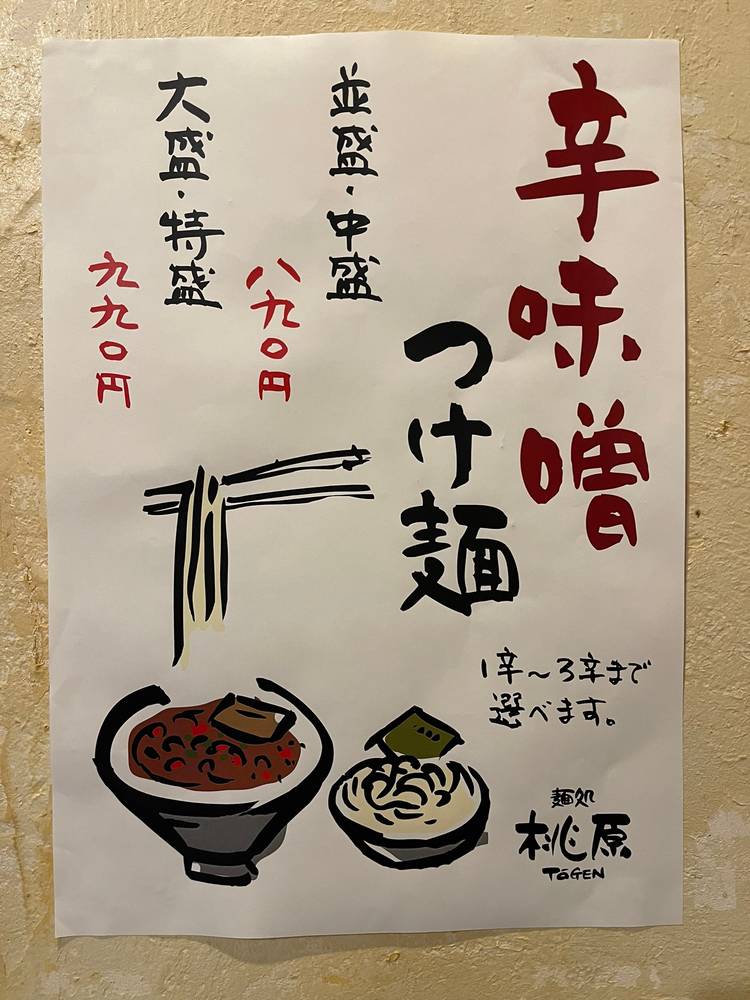 辛味噌
つけ麺
並盛・中盛
八九〇円
大盛・特盛
九九〇円
1辛〜3辛まで
選べます。
麺処
桃原
TōGEN